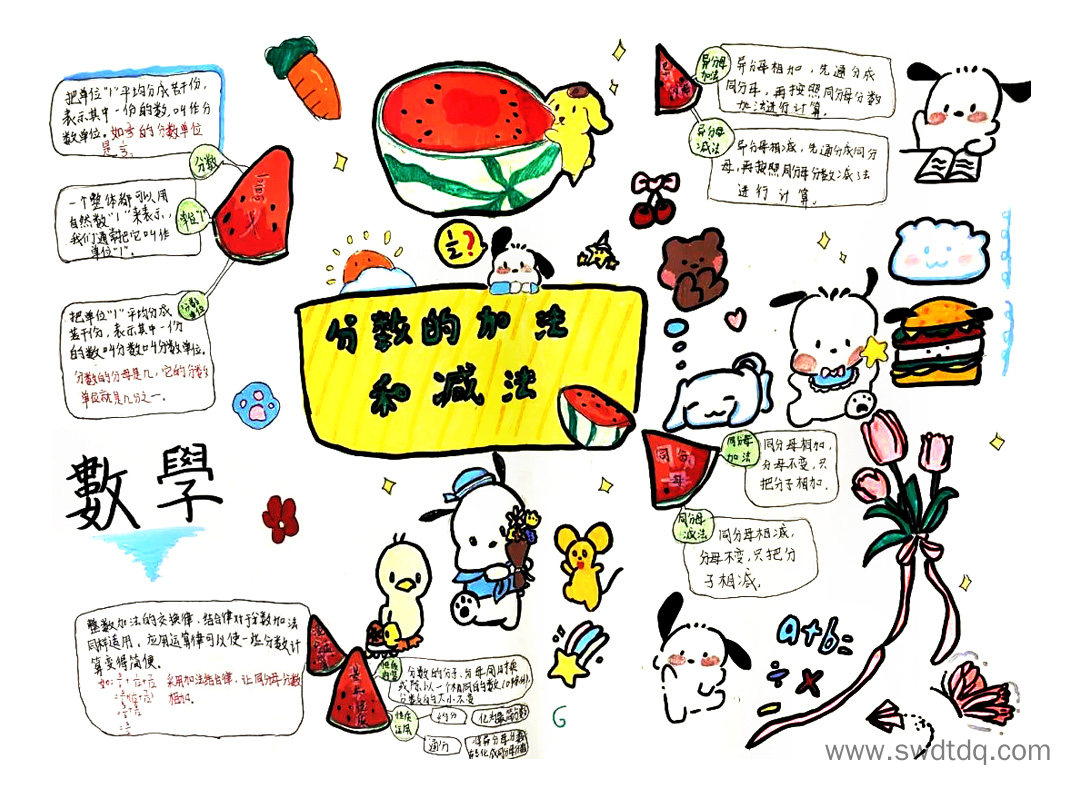 把单位"1"平均分成若干份,
表示其中一份的数,叫作分
数单位。如
的分数单位
是
分数
一个整体都可以用
自然数"1"来表示,
我们通常把它叫作
单位"1"。
单位"1"
意义
把单位"1"平均分成
若干份,表示其中一份
的数叫分数叫分数单位。
分数的分母是几,它的分数
单位就是几分之一。
分数
单位
數學
½?
分数的加法
和减法
异分母
加法
异分母相加,先通分成
同分母,再按照同分母分数
加法进行计算。
异分母
减法
异分母相减,先通分成同分
母,再按照同分母分数减法
进行计算。
同分母
同分母
加法
同分母相加,
分母不变,只
把分子相加.
同分母
减法
同分母相减,
分母不变,只把分
子相减.
整数加法的交换律、结合律对于分数加法
同样适用,应用运算律可以使一些分数计
算变得简便。
采用加法结合律,让同分母分数
相加.
基本性质
分数的分子、分母同时乘
或除以一个相同的数(0除外),
分数的大小不变
性质
运用
约分
化为最简分数
通分
G
a+b=
÷ ×
www.swdtdq.com